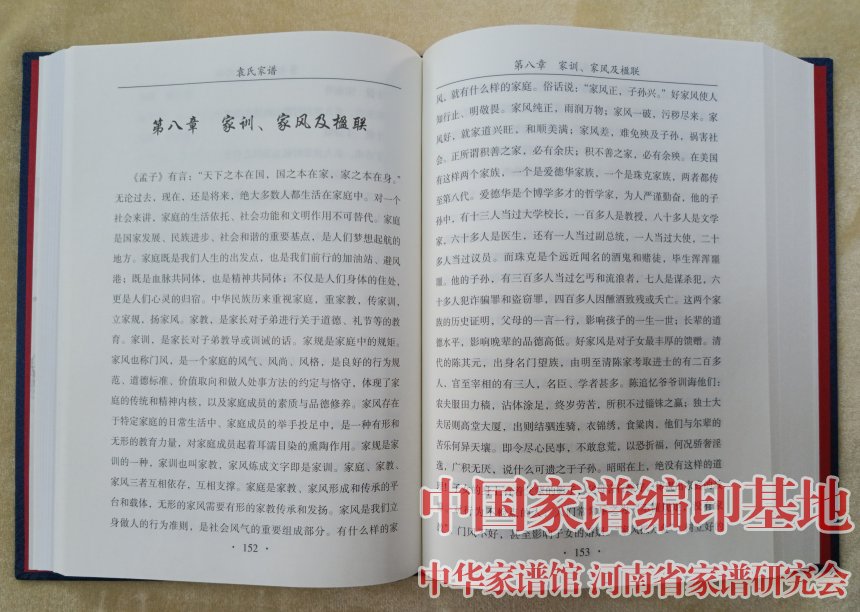 袁氏家谱
第八章 家训、家风及楹联
《孟子》有言：“天下之本在国，国之本在家，家之本在身。”
无论过去，现在，还是将来，绝大多数人都生活在家庭中。对一个
社会来讲，家庭的生活依托、社会功能和文明作用不可替代。家庭
是国家发展、民族进步、社会和谐的重要基点，是人们梦想起航的
地方。家庭既是我们人生的出发点，也是我们前行的加油站、避风
港；既是血脉共同体，也是精神共同体；不仅是人们身体的住处，
更是人们心灵的归宿。中华民族历来重视家庭，重家教，传家训，
立家规，扬家风。家教，是家长对子弟进行关于道德、礼节等的教
育。家训，是家长对子弟教导或训诫的话。家规是家庭中的规矩。
家风也称门风，是一个家庭的风气、风尚、风格，是良好的行为规
范、道德标准、价值取向和做人处事方法的约定与恪守，体现了家
庭的传统和精神内核，以及家庭成员的素质与品德修养。家风存在
于特定家庭的日常生活中、家庭成员的举手投足中，是一种有形和
无形的教育力量，对家庭成员起着耳濡目染的熏陶作用。家规是家
训的一种，家训也叫家教，家风炼成文字即是家训。家庭、家教、
家风三者互相依存，互相支撑。家庭是家教、家风形成和传承的平
台和载体，无形的家风需要有形的家教传承和发扬。家风是我们立
身做人的行为准则，是社会风气的重要组成部分。有什么样的家
·152·
第八章 家训、家风及楹联
风，就有什么样的家庭。俗话说：“家风正，子孙兴。”好家风使人
知行止、明敬畏。家风纯正，雨润万物；家风一破，污秽尽来。家
风好，就家道兴旺，和顺美满；家风差，难免殃及子孙，祸害社
会。正所谓积善之家，必有余庆；积不善之家，必有余殃。在美国
有这样两个家族，一个是爱德华家族，一个是珠克家族，两者都传
至第八代。爱德华是个博学多才的哲学家，为人严谨勤奋，他的子
孙中，有十三人当过大学校长，一百多人是教授，八十多人是文学
家，六十多人是医生，还有一人当过副总统，一人当过大使，二十
多人当过议员。而珠克是个远近闻名的酒鬼和赌徒，毕生浑浑噩
噩。他的子孙，有三百多人当过乞丐和流浪者，七人是谋杀犯，六
十多人犯诈骗罪和盗窃罪，四百多人因酗酒致残或夭亡。这两个家
族的历史证明，父母的一言一行，影响孩子的一生一世；长辈的道
德水平，影响晚辈的品德高低。好家风是对子女最丰厚的馈赠。清
代的陈其元，出身名门望族，由明至清陈家考取进士的有二百多
人，官至宰相的有三人，名臣、学者甚多。陈追忆爷爷训诲他们：
农夫服田力穑，沾体涂足，终岁劳苦，所积不过锱铢之赢；独士大
夫居则高堂大厦，出则结驷连骑，衣锦绣，食粱肉，他们与农辈的
苦乐何异天壤。即令尽心民事，不敢怠荒，以恐折福，何况骄奢淫
逸，广积无厌，说什么可遗之于子孙。昭昭在上，绝没有这样的道
门风不好，甚至影响子女的婚姻
·153·
中国家谱编印基地
中华家谱馆 河南省家谱研究会